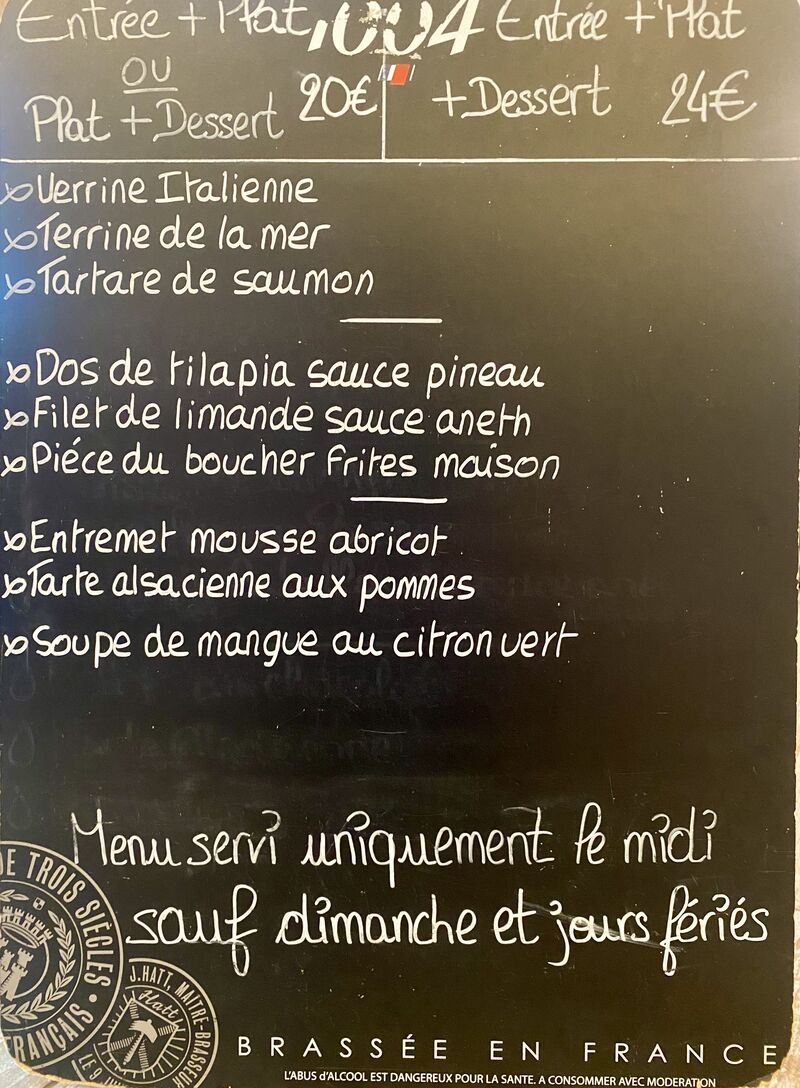 Entrée + Plat
OU
Plat + Dessert 20€
Entrée + Plat
+ Dessert 24€
Verrine Italienne
Terrine de la mer
Tartare de saumon
Dos de tilapia sauce pineau
Filet de limande sauce aneth
Piéce du boucher frites maison
Entremet mousse abricot
Tarte alsacienne aux pommes
Soupe de mangue au citron vert
Menu servi uniquement le midi
sauf dimanche et jours fériés
DE TROIS SIÈCLES •
FRANÇAIS
J.HATT, MAITRE-BRASSEUR
Hatt
BRASSÉE EN FRANCE
L'ABUS d'ALCOOL EST DANGEREUX POUR LA SANTE. A CONSOMMER AVEC MODERATION